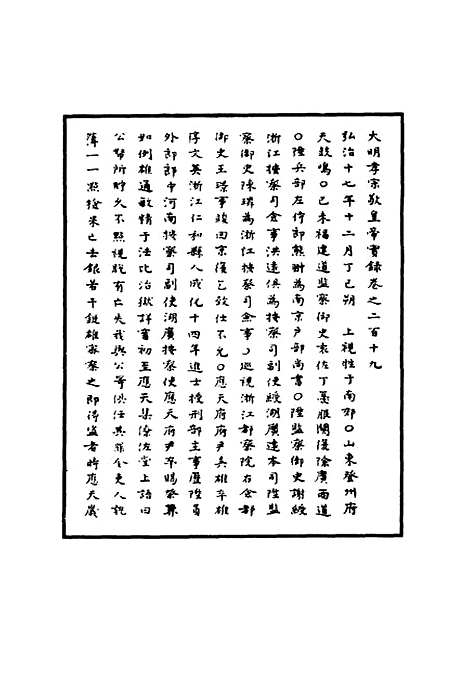 大明孝宗敬皇帝實錄卷之二百十九
弘治十七年十二月丁巳朔　上視牲于南郊○山東登州府
天鼓鳴○己未福建道監察御史袁佐丁憂服闋復除廣西道
○陞兵部左侍郎熊翀為南京戶部尚書○陞監察御史謝綬
浙江按察司僉事洪遠俱為按察司副使綬湖廣遠本司陞監
察御史陳璘為浙江按察司僉事○巡視浙江都察院右僉都
御史王璟事竣回京復乞致仕不允○應天府府尹吳雄卒雄
字文英浙江仁和縣人成化十四年進士授刑部主事歷陞員
外郎郎中河南按察司副使湖廣按察使應天府尹卒賜祭葬
如例雄通敏精于法比治獄詳審初至應天集僚佐堂上語曰
公帑所貯久不照視脫有亡失我與公等俱任其罪令吏人視
簿一一照撿果亡去銀若干鋌雄密察之即得盜者時應天歲